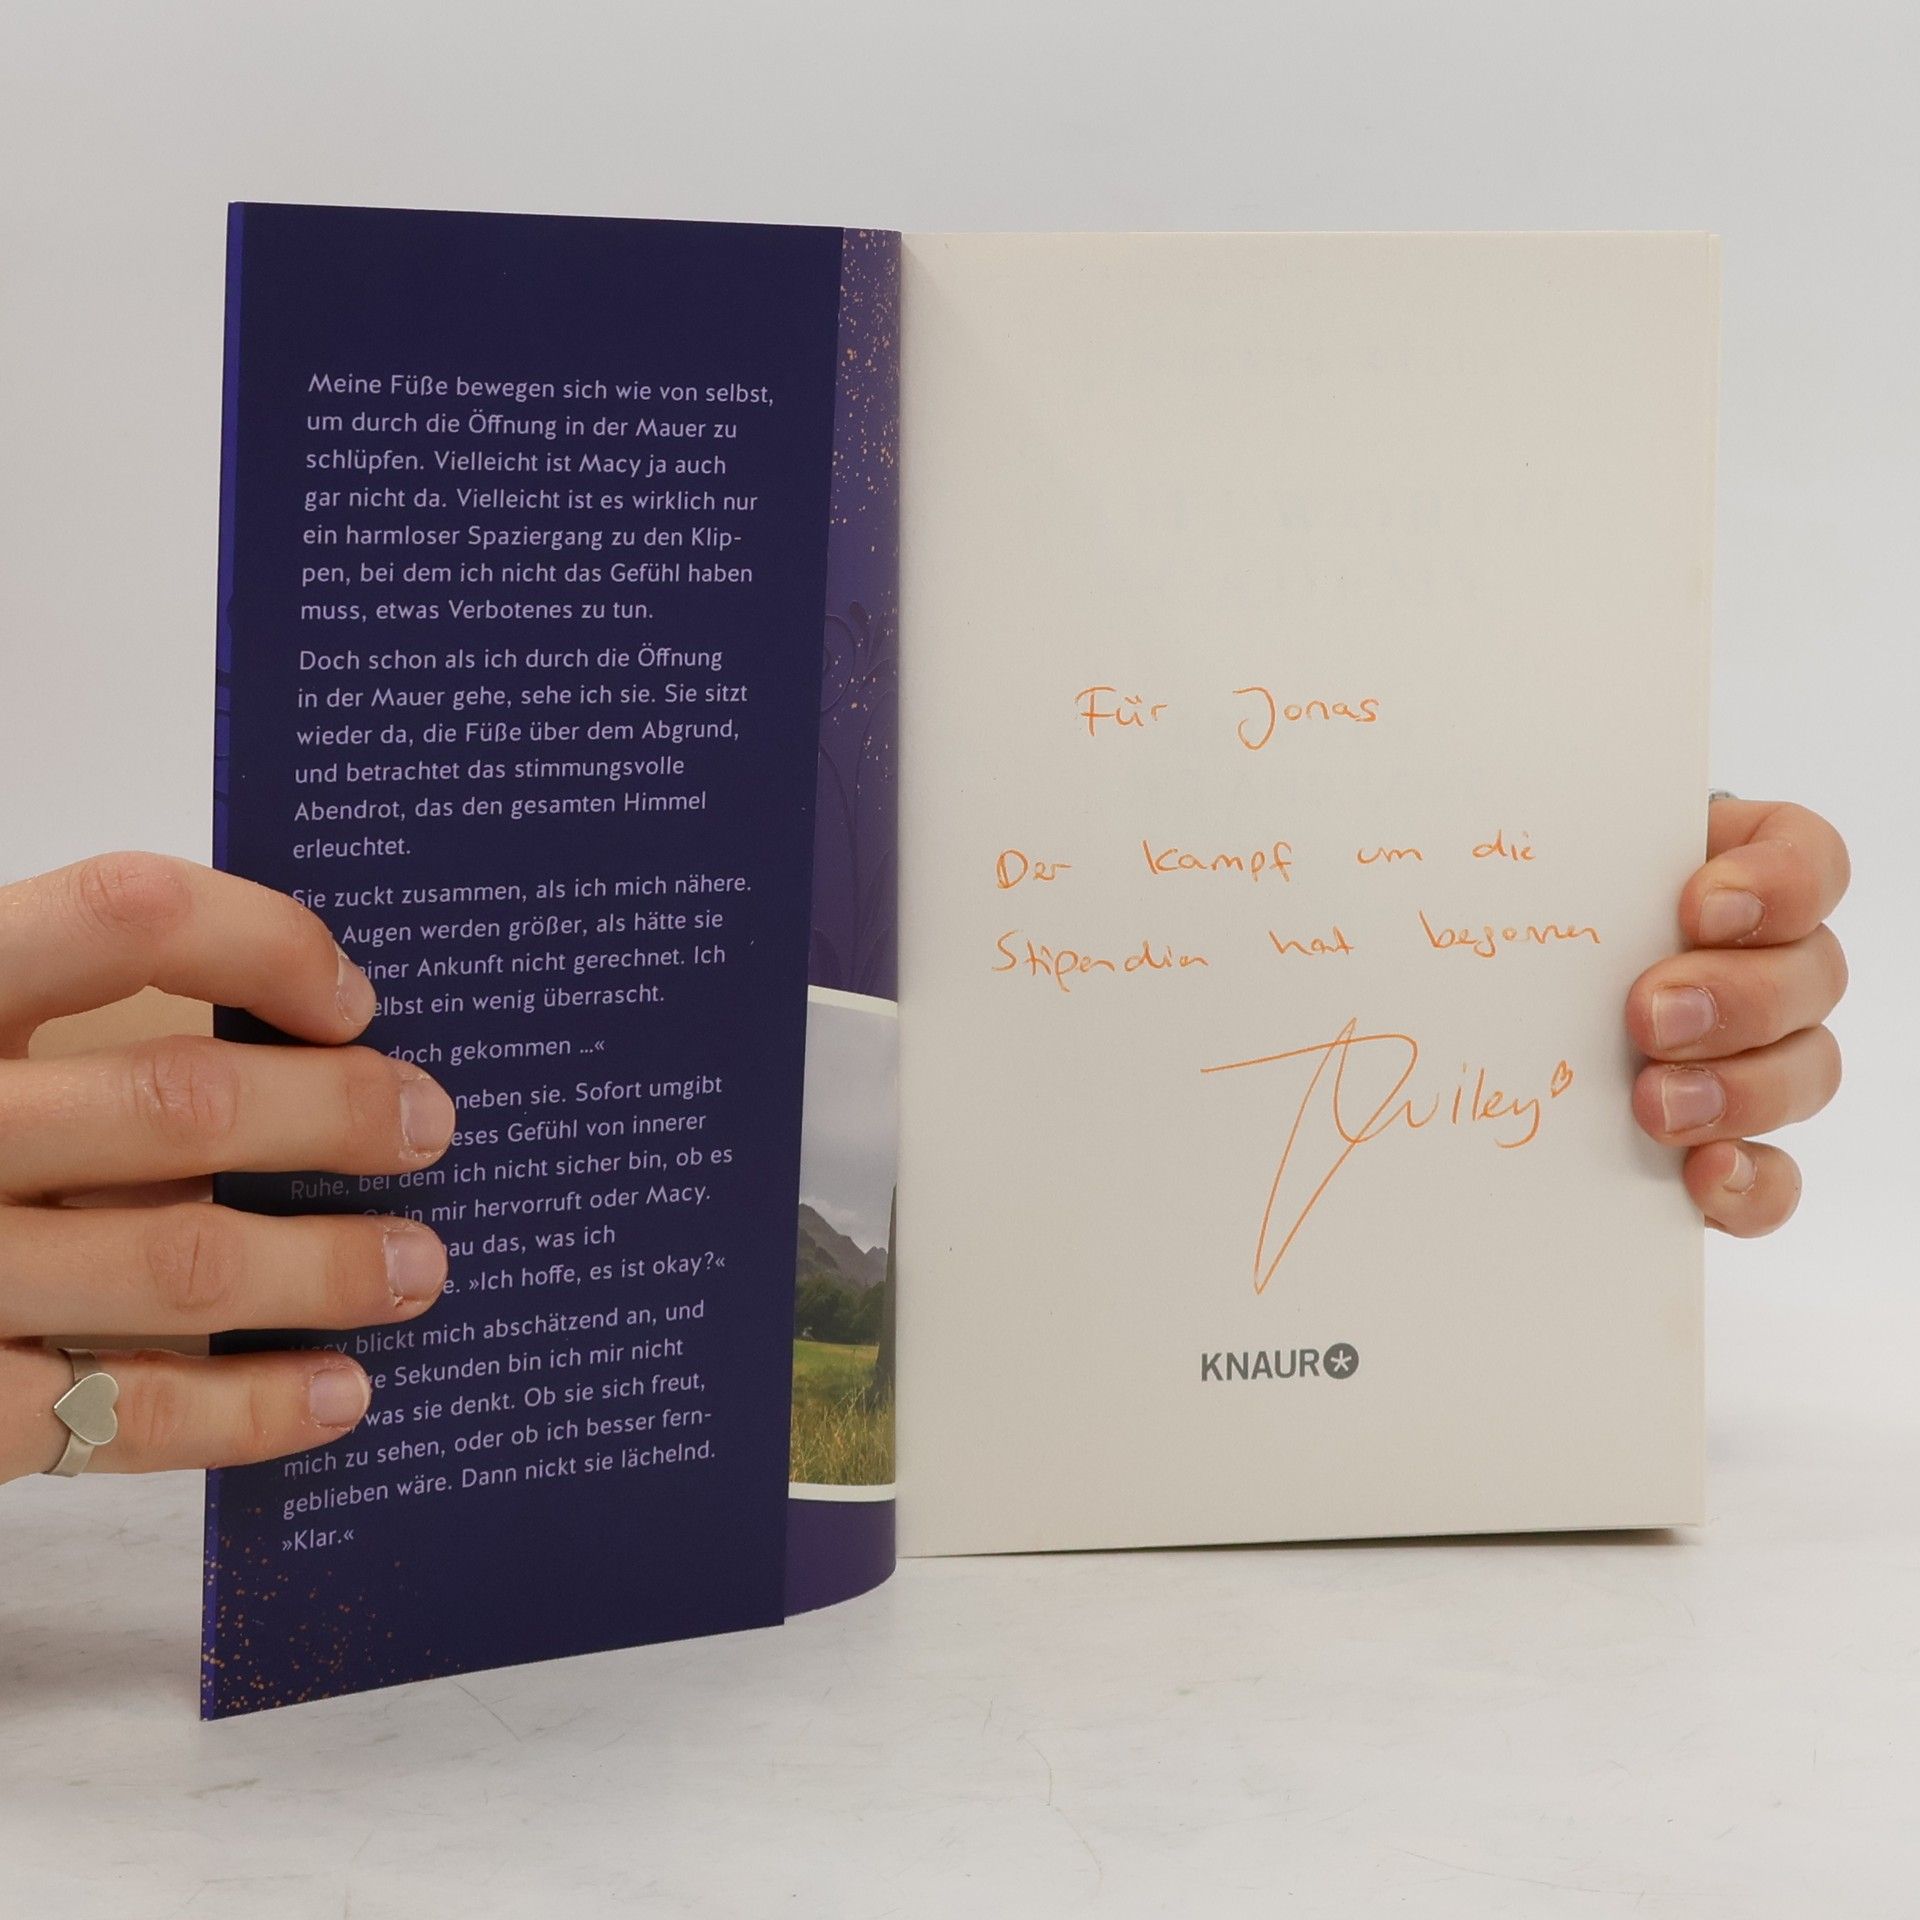 Meine Füße bewegen sich wie von selbst,
um durch die Öffnung in der Mauer zu
schlüpfen. Vielleicht ist Macy ja auch
gar nicht da. Vielleicht ist es wirklich nur
ein harmloser Spaziergang zu den Klip-
pen, bei dem ich nicht das Gefühl haben
muss, etwas Verbotenes zu tun.
Doch schon als ich durch die Öffnung
in der Mauer gehe, sehe ich sie. Sie sitzt
wieder da, die Füße über dem Abgrund,
und betrachtet das stimmungsvolle
Abendrot, das den gesamten Himmel
erleuchtet.
Sie zuckt zusammen, als ich mich nähere.
Augen werden größer, als hätte sie
Ankunft nicht gerechnet. Ich
ein wenig überrascht.
doch gekommen ...«
neben sie. Sofort umgibt
Gefühl von innerer
Ruhe, bei dem ich nicht sicher bin, ob es
in mir hervorruft oder Macy.
das, was ich
»Ich hoffe, es ist okay?«
blickt mich abschätzend an, und
Sekunden bin ich mir nicht
was sie denkt. Ob sie sich freut,
mich zu sehen, oder ob ich besser fern-
geblieben wäre. Dann nickt sie lächelnd.
»Klar.«
Für Jonas
Der Kampf um die
Stipendien hat begonnen
KNAUR